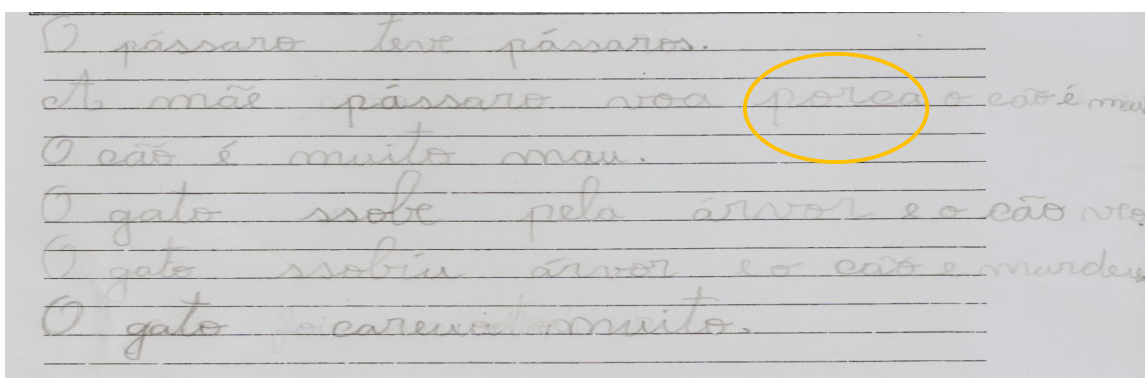 O pássaro teve pássaros.
A mãe pássaro voa porca o cão é mau
O cão é muito mau.
O gato ssobe pela árvor e o cão vec
O gato ssobiu árvor e o cão e mardeu
O gato careu muito.